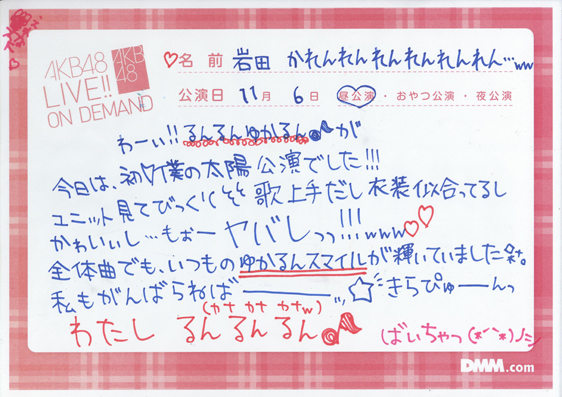 AKB48
LIVE!!
ON DEMAND
AKB
48
♡名前 岩田 かれんれんれんれんれんれん…ww
公演日 11月 6日 昼公演・おやつ公演・夜公演
わーい!!るんるんゆかるん♪が
今日は、初♡僕の太陽公演でした!!!
ユニット見てびっくり 歌上手だし衣装似合ってるし
かわいいし…もぉーヤバしっっ!!!www♡♡
全体曲でも、いつものゆかるんスマイルが輝いていました☆。
私もがんばらねばーーーーッ☆きらぴゅーーんっ
(カナ カナ カナw)
わたし るんるんるん♪
(ばいちゃっ(*´`*)ノシ
DMM.com